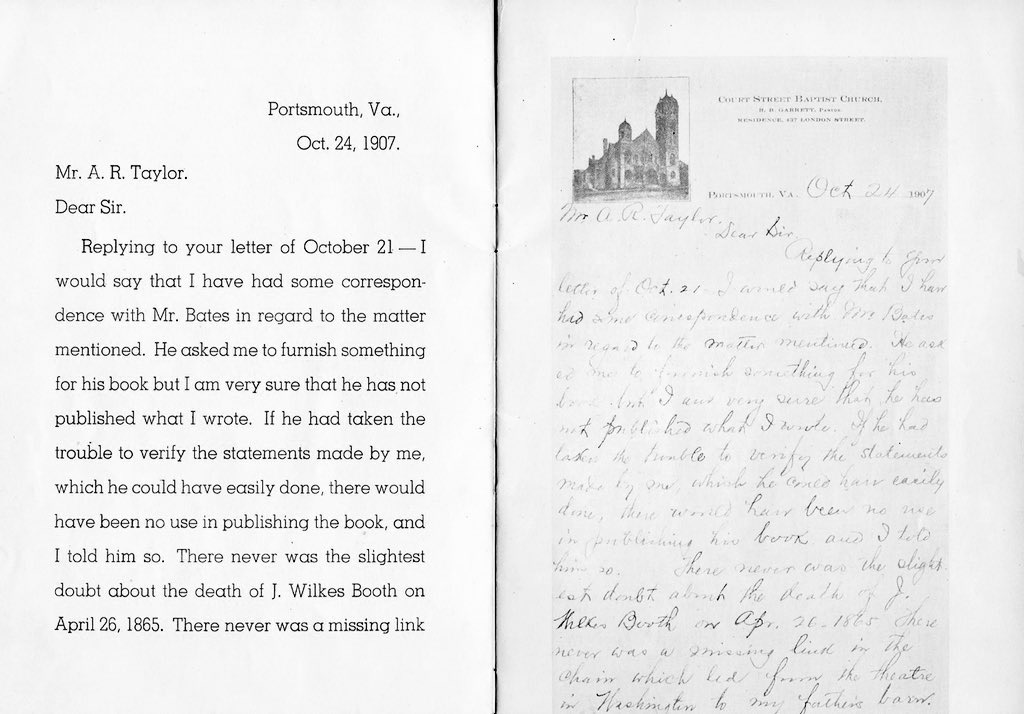 Portsmouth, Va.,
Oct. 24, 1907.
Mr. A. R. Taylor.
Dear Sir.
Replying to your letter of October 21 — I
would say that I have had some correspon-
dence with Mr. Bates in regard to the matter
mentioned. He asked me to furnish something
for his book but I am very sure that he has not
published what I wrote. If he had taken the
trouble to verify the statements made by me,
which he could have easily done, there would
have been no use in publishing the book, and
I told him so. There never was the slightest
doubt about the death of J. Wilkes Booth on
April 26, 1865. There never was a missing link
COURT STREET BAPTIST CHURCH,
R. B. GARRETT, PASTOR
RESIDENCE, 437 LONDON STREET.
PORTSMOUTH, VA., Oct 24 1907
Mr A. R. Taylor.
Dear Sir
Replying to your
letter of Oct. 21 - I would say that I have
had some correspondence with Mr. Bates
in regard to the matter mentioned. He ask
ed me to furnish something for his
book but I am very sure that he has
not published what I wrote. If he had
taken the trouble to verify the statements
made by me, which he could have easily
done, there would have been no use
in publishing his book, and I told
him so. There never was the slight
est doubt about the death of J.
Wilkes Booth on Apr. 26-1865 There
never was a missing link in the
chain which led from the theatre
in Washington to my father's barn.